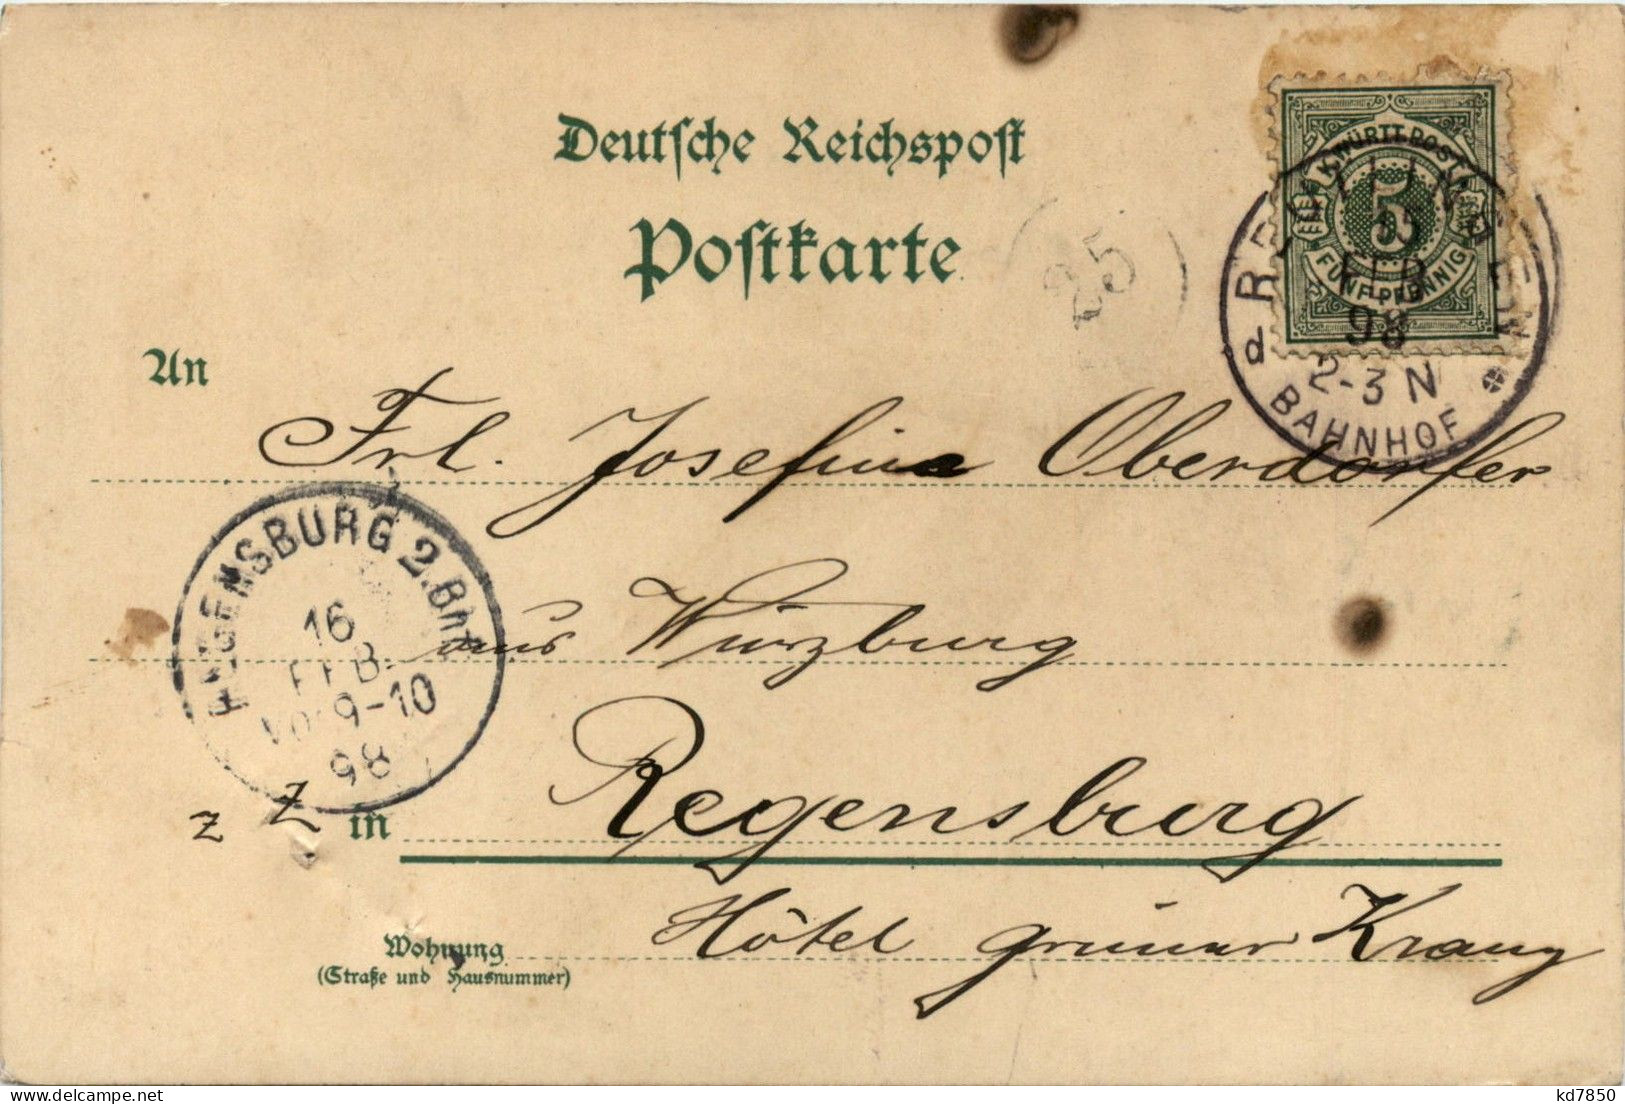 Deutsche Reichspost
Postkarte
K. WÜRTT. POST
5
FÜNF PFENNIG
REUTLINGEN
15
FEB
98
d 2-3 N
BAHNHOF
25
An Frl. Josefine Oberdorfer
REGENSBURG 2.Bhf.
16
FEB.
Vor 9-10
98
aus Würzburg
z Z in Regensburg
Wohnung Hôtel grüner Kranz
(Straße und Hausnummer)
kd7850